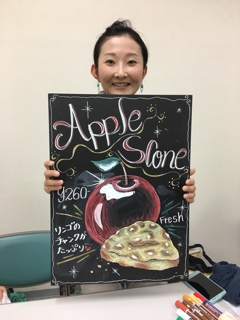 Apple
Scone
¥260
Fresh
リンゴの
チャンクが
たっぷり